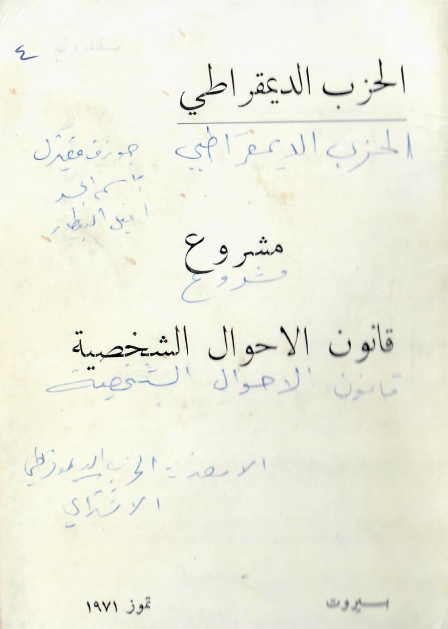 ٤
الحزب الديمقراطي
الحزب الديمقراطي جوزف مغيزل
باسم الجسر
اميل البيطار
مشروع
مشروع
قانون الاحوال الشخصية
قانون الاحوال الشخصية
الحزب الديموقراطي
الاشتراكي
بيروت تموز ١٩٧١